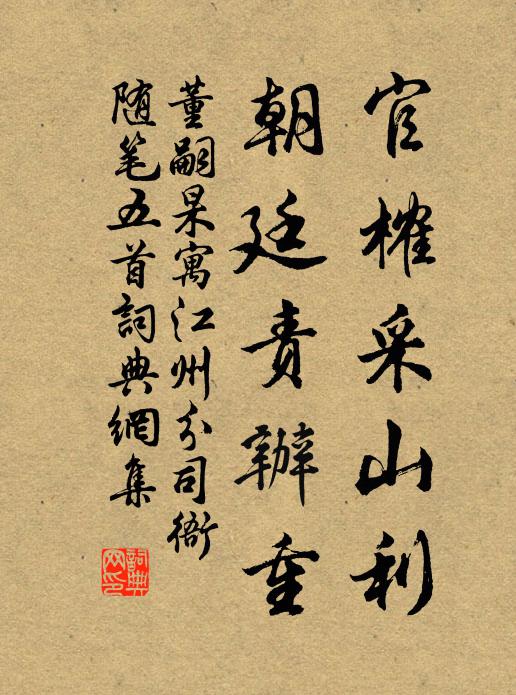 官榷采山利
朝廷責辦重
董嗣杲寓江州分司衙
随笔五首詞典網集
詞典网印